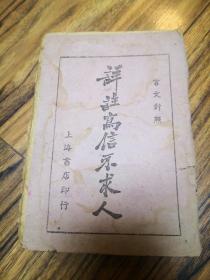 言文對照
詳註寫信不求人
上海書店印行